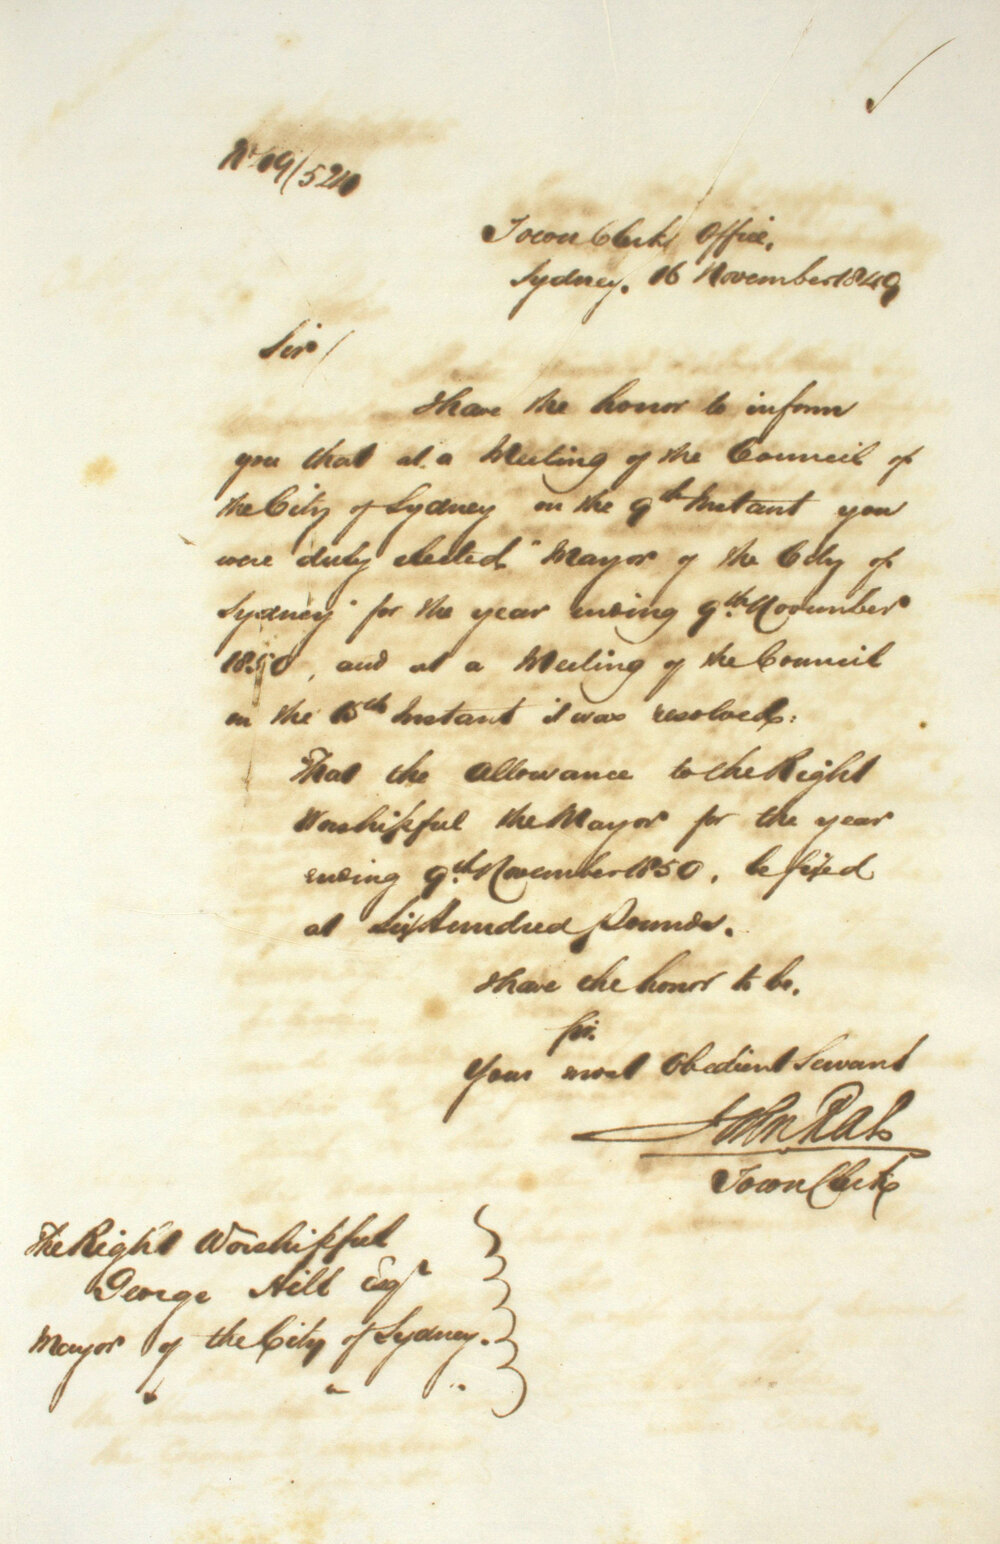 Town Clerk's Office,
Sydney. 16 November 1849
Sir/
I have the honor to inform
you that at a Meeting of the Council of
the City of Sydney on the 9th Instant you
were duly elected "Mayor of the City of
Sydney" for the year ending 9th November
1850, and at a Meeting of the Council
on the 15th Instant it was resolved:
That the allowance to the Right
Worshipful the Mayor for the year
ending 9th November 1850. be fixed
at Six Hundred Pounds.
I have the honor to be.
Sir.
Your most Obedient Servant
John Rae
Town Clerk
The Right Worshipful
George Hill Esqr
Mayor of the City of Sydney.